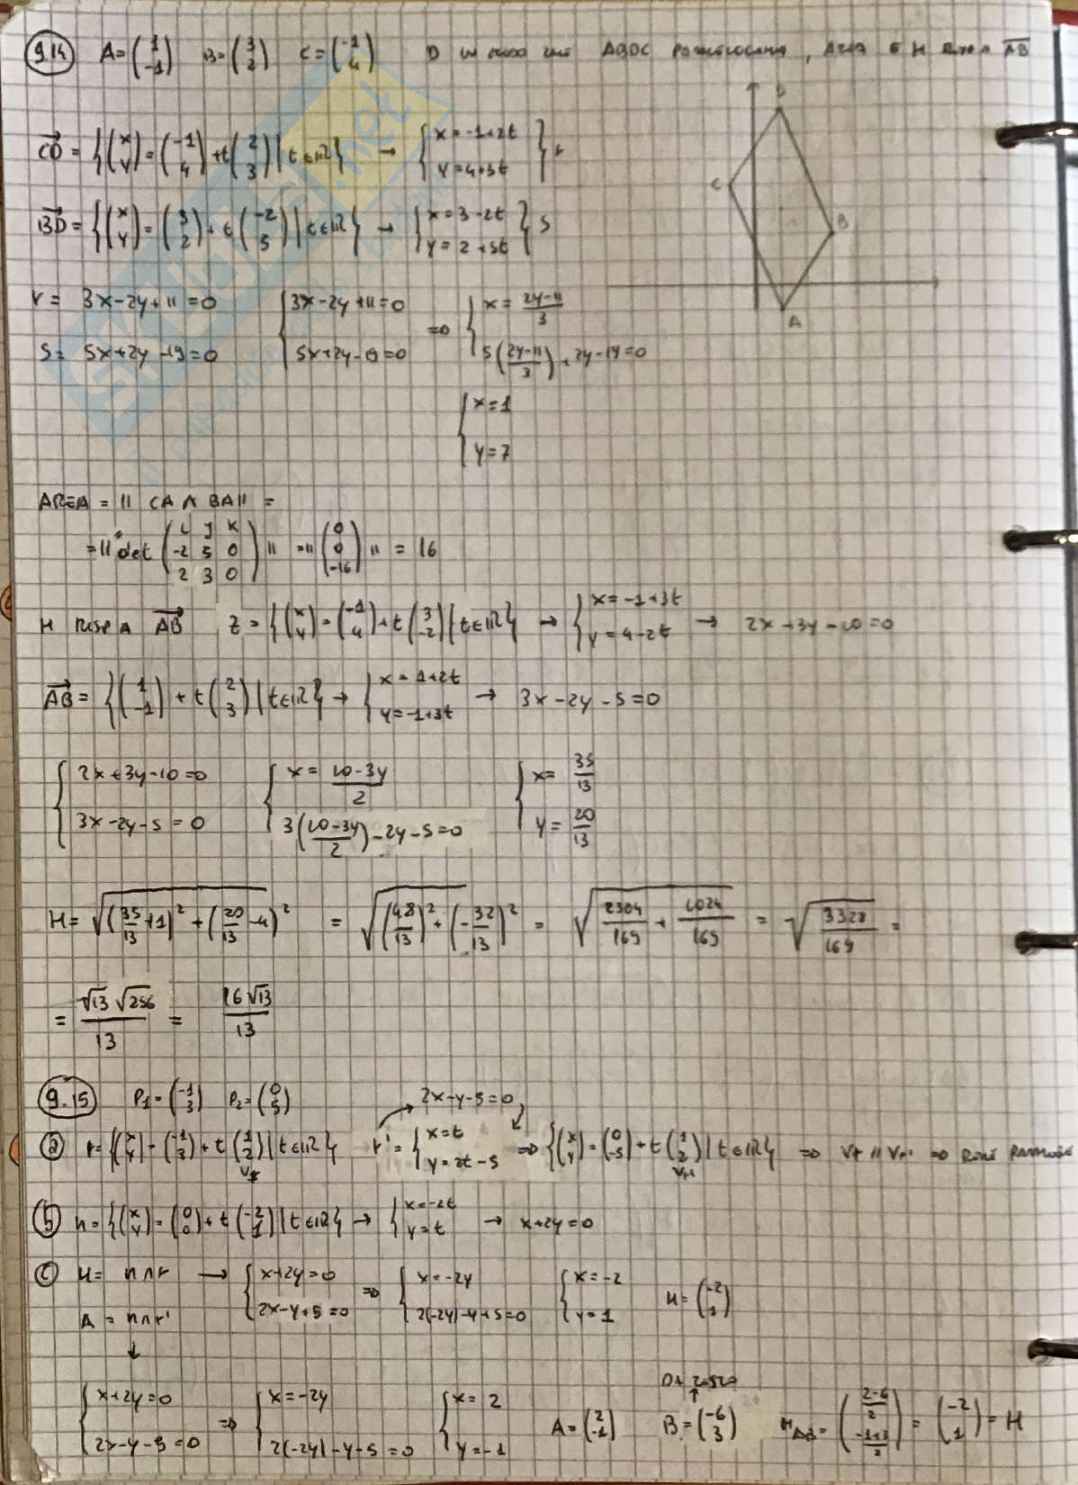 9.14 A=(1 -1) B=(3 2) C=(-1 4) D in modo che ABDC parallelogramma, area e H risp a AB
CD = {(x y)=(-1 4)+t(2 3)|t∈ℝ} → {x=-1+2t y=4+3t} r
BD = {(x y)=(3 2)+t(-2 5)|t∈ℝ} → {x=3-2t y=2+5t} s
C B A
r= 3x-2y+11=0 {3x-2y+11=0 => {x=(2y-11)/3
s= 5x+2y-19=0 5x+2y-19=0 5((2y-11)/3)+2y-19=0
{x=1
y=7
AREA = || CA ∧ BA || =
=|| det (i j k -2 5 0 2 3 0) || =||(0 0 -16)|| = 16
H RISP A AB z={(x y)=(-1 4)+t(3 -2)|t∈ℝ} → {x=-1+3t y=4-2t → 2x+3y-10=0
AB = {(1 -1)+t(2 3)|t∈ℝ} → {x=1+2t y=-1+3t → 3x-2y-5=0
{2x+3y-10=0 {x=(10-3y)/2 {x=35/13
3x-2y-5=0 3((10-3y)/2)-2y-5=0 y=20/13
H=√((35/13+1)²+(20/13-4)² = √((48/13)²+(-32/13)² = √(2304/169+1024/169) = √(3328/169) =
= √13 √256/13 = 16√13/13
9.15 P1=(-1 3) P2=(0 5) 2x-y-5=0
a r={(x y)=(-1 3)+t(1 2)|t∈ℝ} Vr r'={x=t y=2t-5 => {(x y)=(0 -5)+t(1 2)|t∈ℝ} Vr' => Vr || Vr' => Rette parallele
b n={(x y)=(0 0)+t(-2 1)|t∈ℝ} → {x=-2t y=t → x+2y=0
c H= n∩r → {x+2y=0 2x-y+5=0 => {x=-2y 2(-2y)-y+5=0 {x=-2 y=1 H=(-2 1)
A = n∩r'
↓
{x+2y=0 2x-y-5=0 => {x=-2y 2(-2y)-y-5=0 {x=2 y=-1 A=(2 -1) B=(-6 3) M_AB=((2-6)/2 (-1+3)/2)=(-2 1)=H